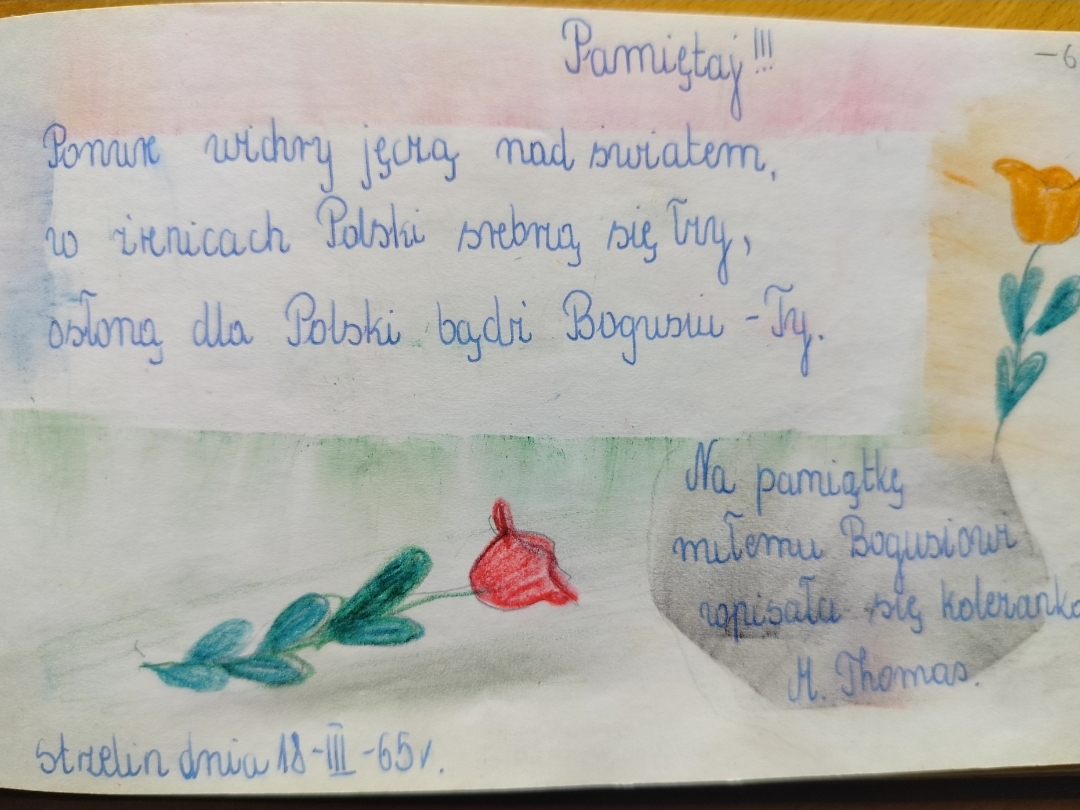 Pamiętaj !!!
-6
Ponure wichry jęczą nad światem,
w źrenicach Polski srebrzą się łzy,
osłoną dla Polski bądź Bogusiu - Ty.
Na pamiątkę
miłemu Bogusiowi
wpisała się koleżanka
M. Thomas.
Strzelin dnia 18-III-65 r.